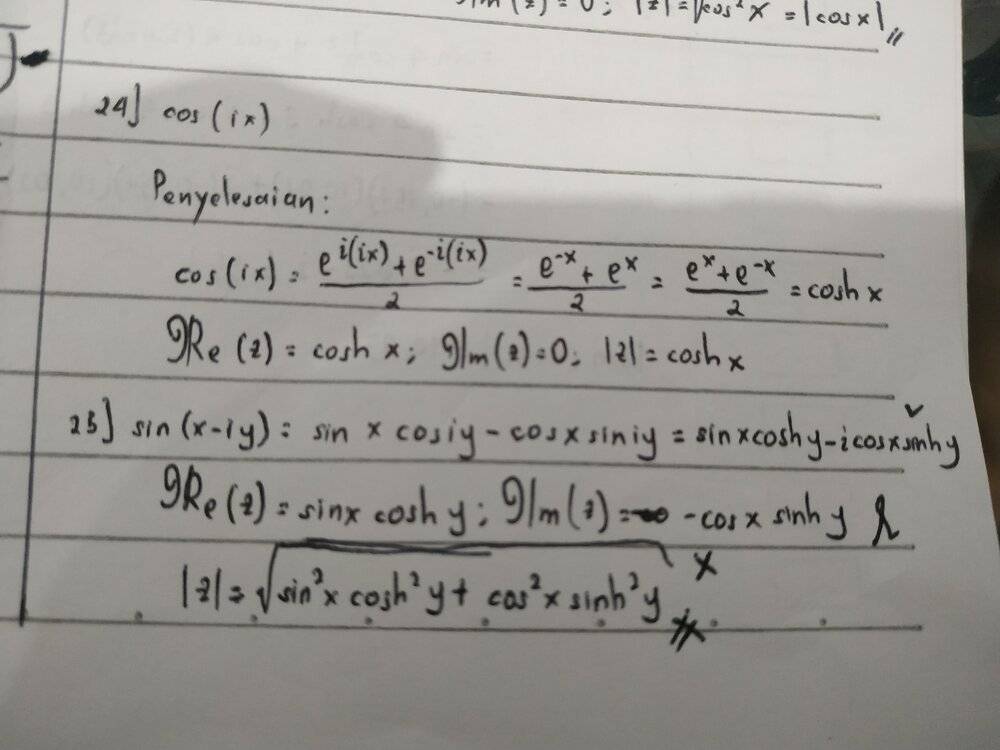 Im(z) = 0; |z| = √cos² x = |cos x| //
24] cos (ix)
Penyelesaian:
cos (ix) = e^i(ix) + e^-i(ix) / 2 = e^-x + e^x / 2 = e^x + e^-x / 2 = cosh x
Re (z) = cosh x; Im (z) = 0; |z| = cosh x
25] sin (x-iy) = sin x cos iy - cos x sin iy = sin x cosh y - i cos x sinh y
Re (z) = sin x cosh y; Im (z) = - cos x sinh y
|z| = √sin² x cosh² y + cos² x sinh² y